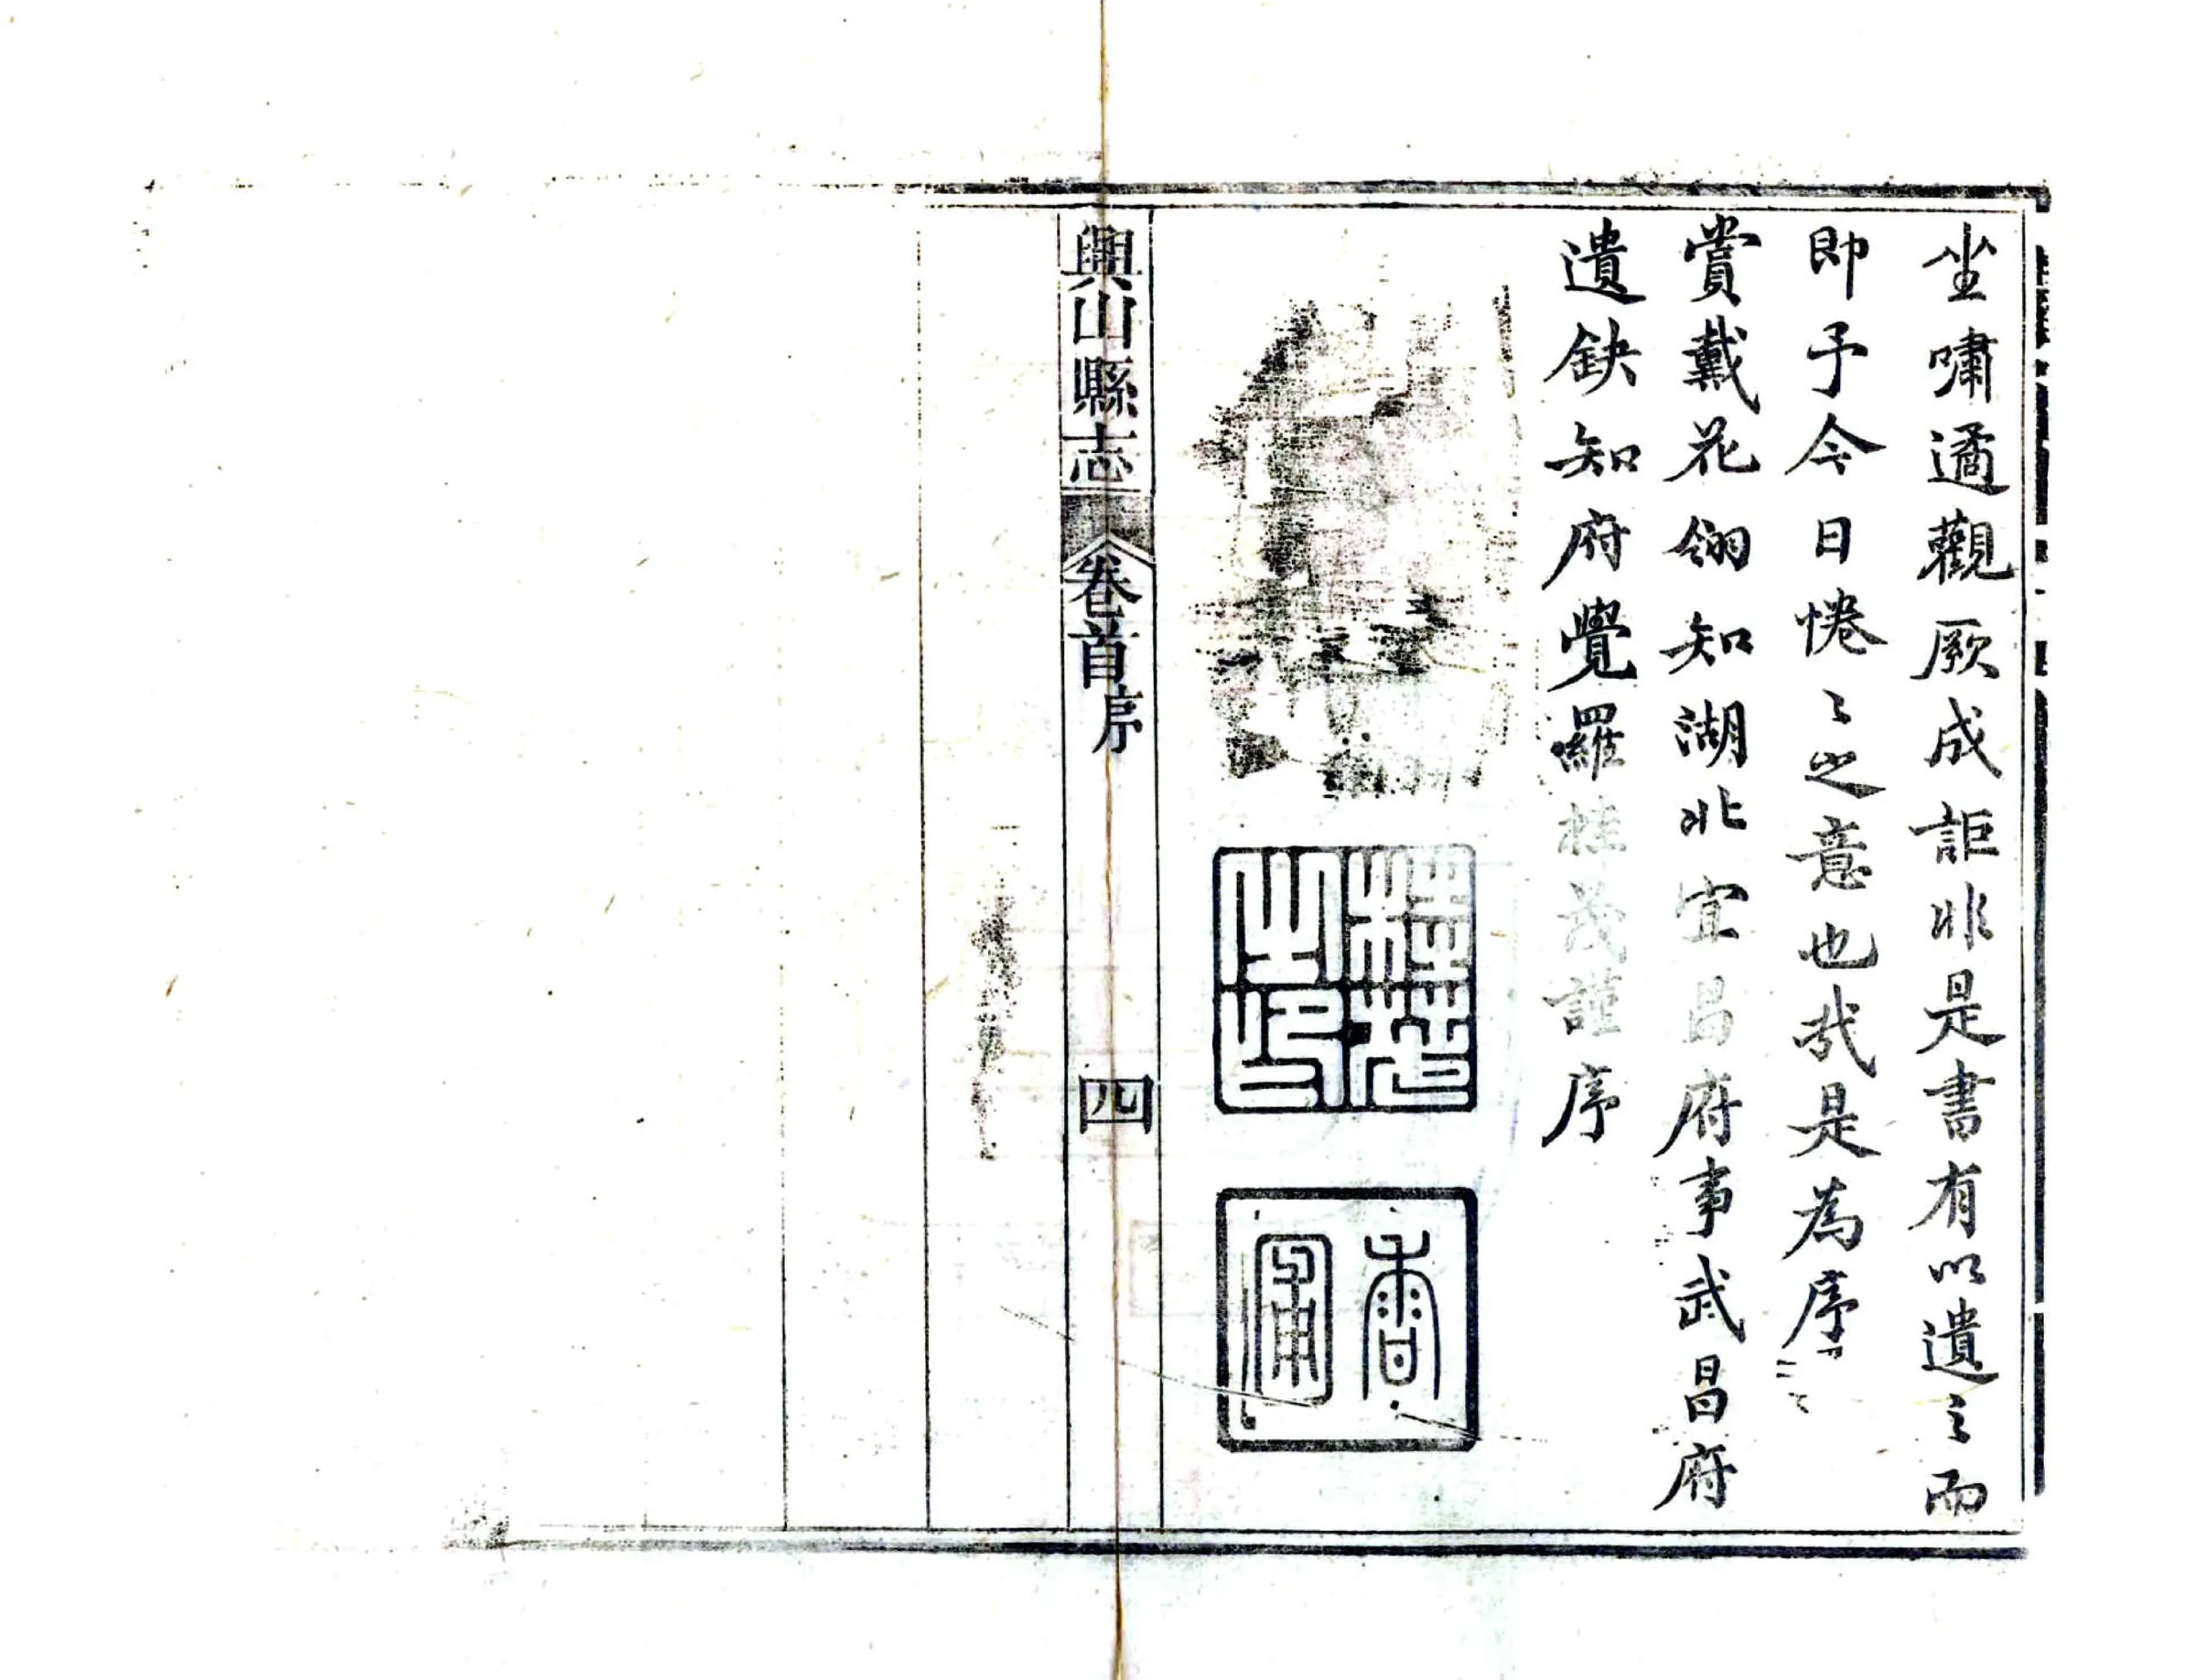 坐嘯遹觀厥成詎非是書有以遺之而
即予今日惓〻之意也哉是為序
賞戴花翎知湖北宜昌府事武昌府
遺缺知府覺羅桂茂謹序
桂茂之印
香
興山縣志 卷首序 四